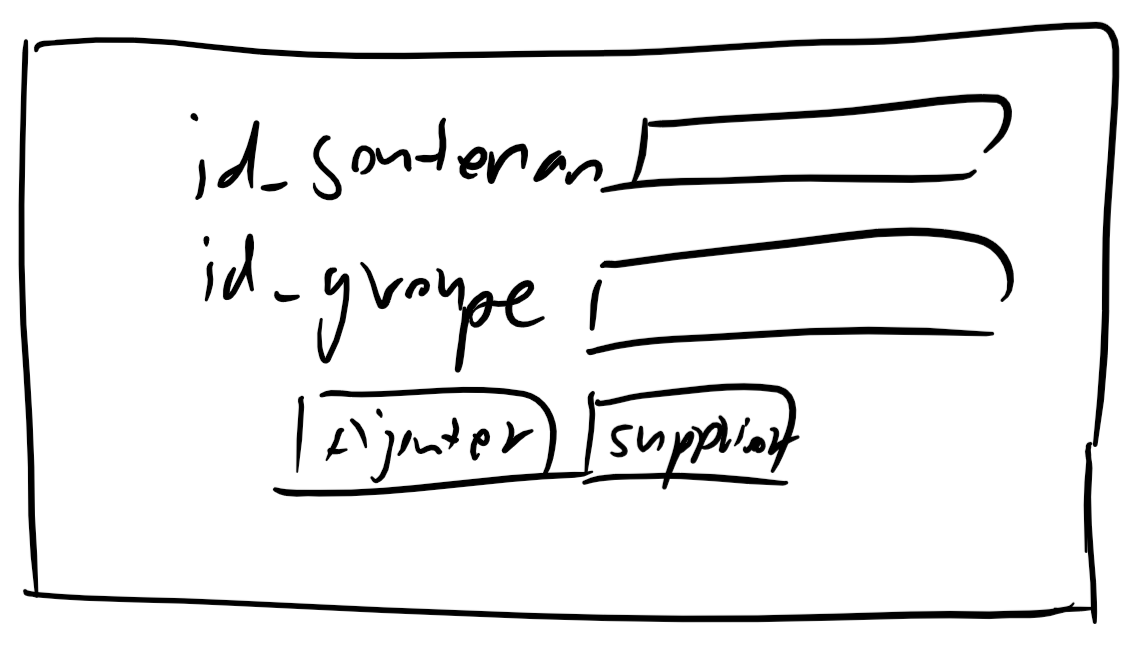 id_soutenan
id_groupe
Ajouter supprier